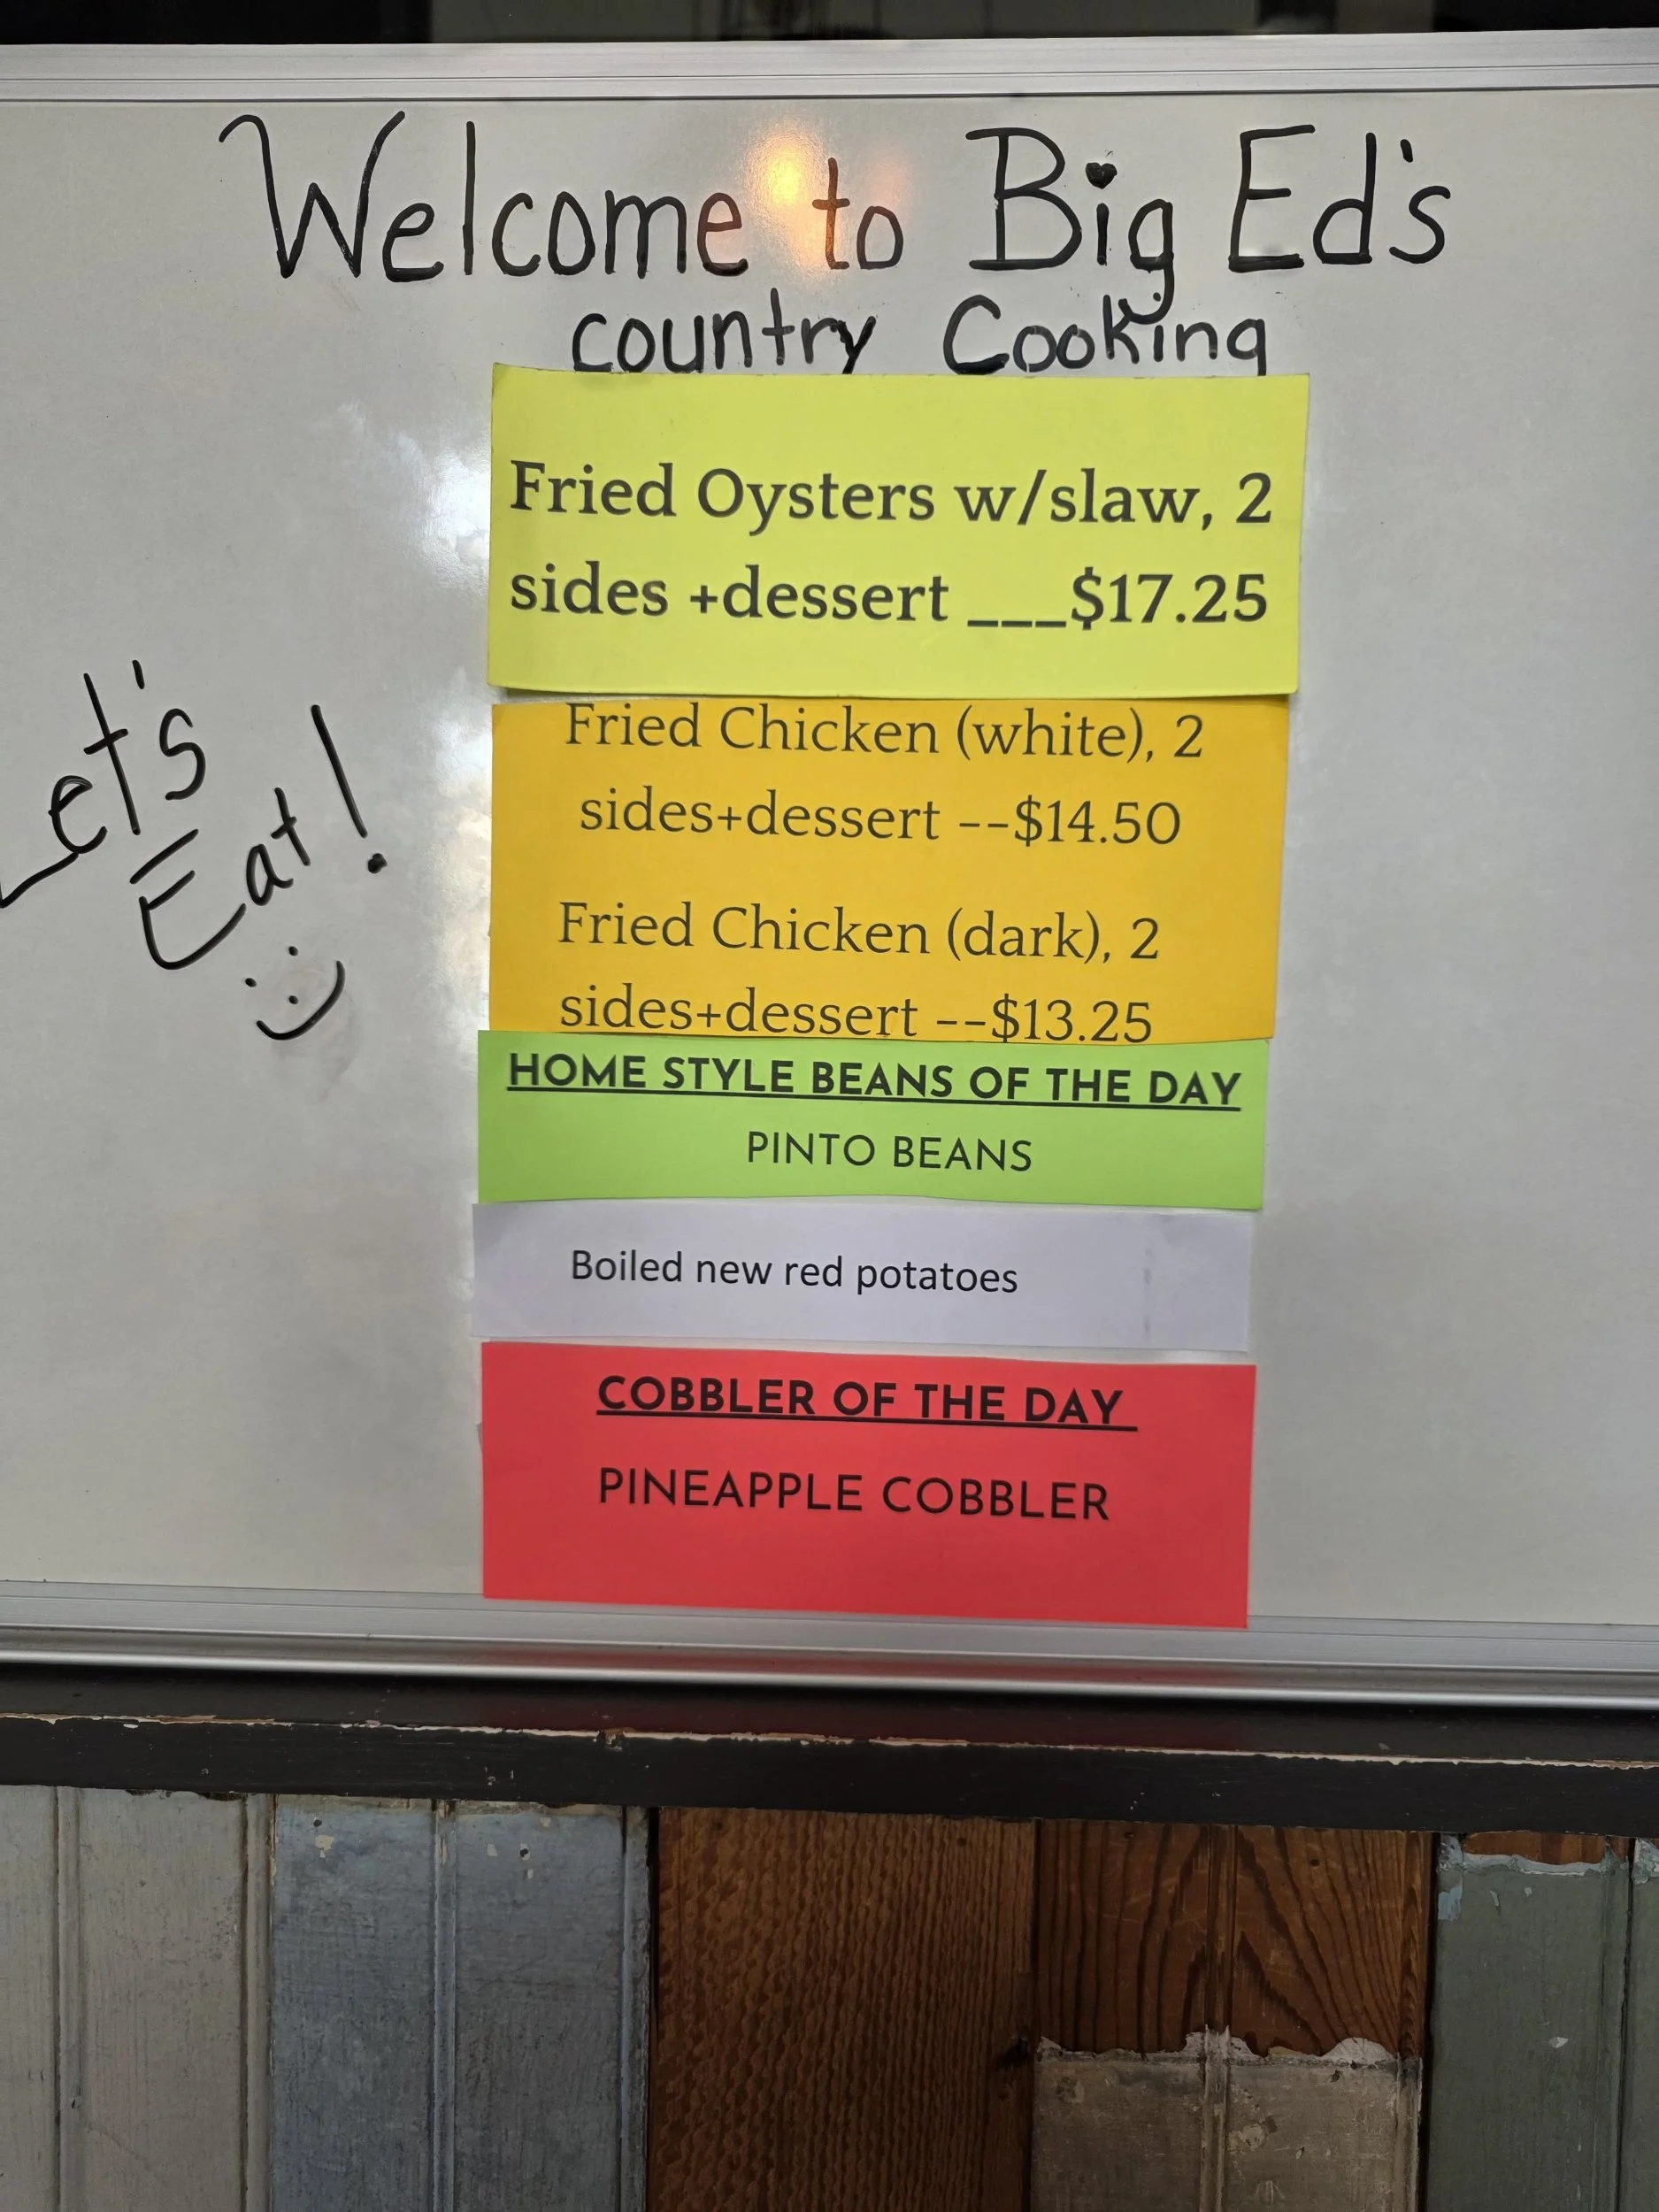 Welcome to Big Ed's
country Cooking
Fried Oysters w/slaw, 2
sides +dessert ___$17.25
Fried Chicken (white), 2
sides+dessert --$14.50
Fried Chicken (dark), 2
sides+dessert --$13.25
HOME STYLE BEANS OF THE DAY
PINTO BEANS
Boiled new red potatoes
COBBLER OF THE DAY
PINEAPPLE COBBLER
Let's
Eat!